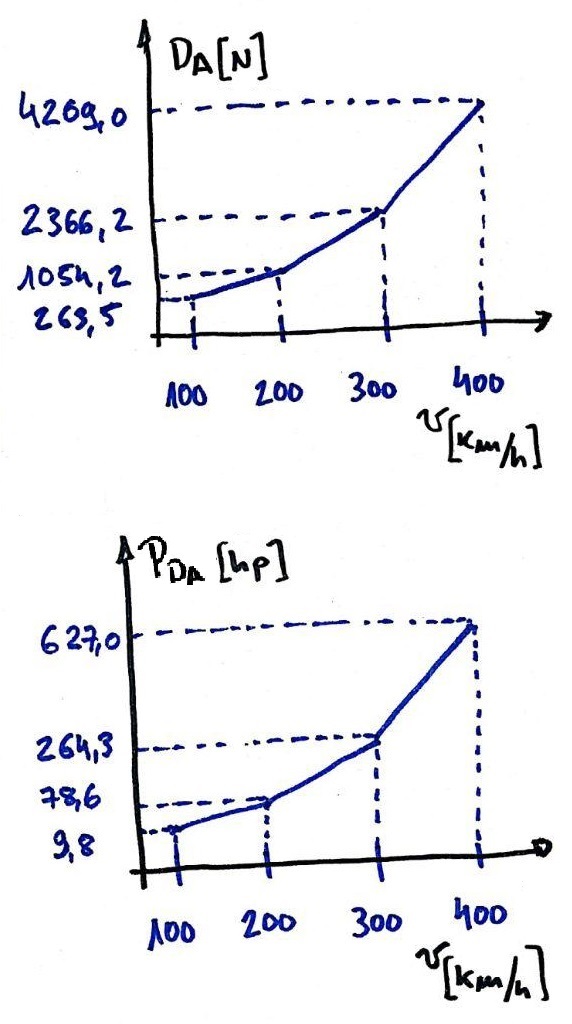 D_A [N]
4209,0
2366,2
1054,2
263,5
100 200 300 400
v [km/h]
P_DA [hp]
627,0
264,3
78,6
9,8
100 200 300 400
v [km/h]